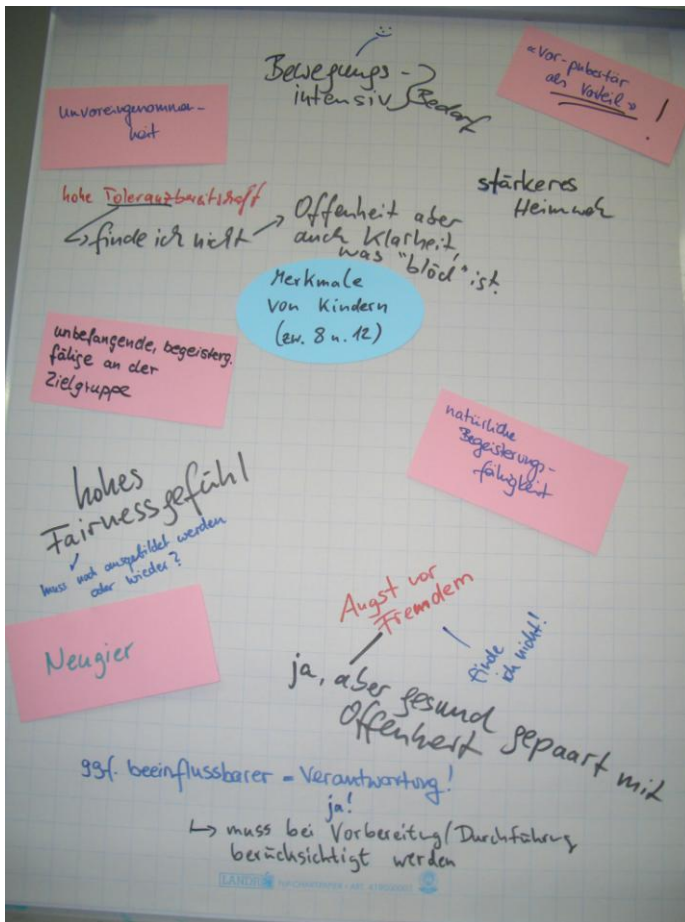 Bewegungs-
intensiv
Bedarf
«Vor-pubertär
als Vorteil»
!
Unvoreingenommen-
heit
hohe Toleranzbereitschaft
↳ finde ich nicht
→ Offenheit aber
auch Klarheit,
was "blöd" ist!
stärkeres
Heimweh
Merkmale
von Kindern
(zw. 8 u. 12)
unbefangende, begeisterg.
fähige an der
Zielgruppe
natürliche
Begeisterungs-
fähigkeit
hohes
Fairnessgefühl
muss noch ausgebildet werden
oder wieder?
Neugier
Angst vor
Fremdem
finde
ich nicht!
ja, aber gesund gepaart mit
Offenheit
ggf. beeinflussbarer = Verantwortung!
ja!
↳ muss bei Vorbereitung/Durchführung
berücksichtigt werden
LANDRÉ